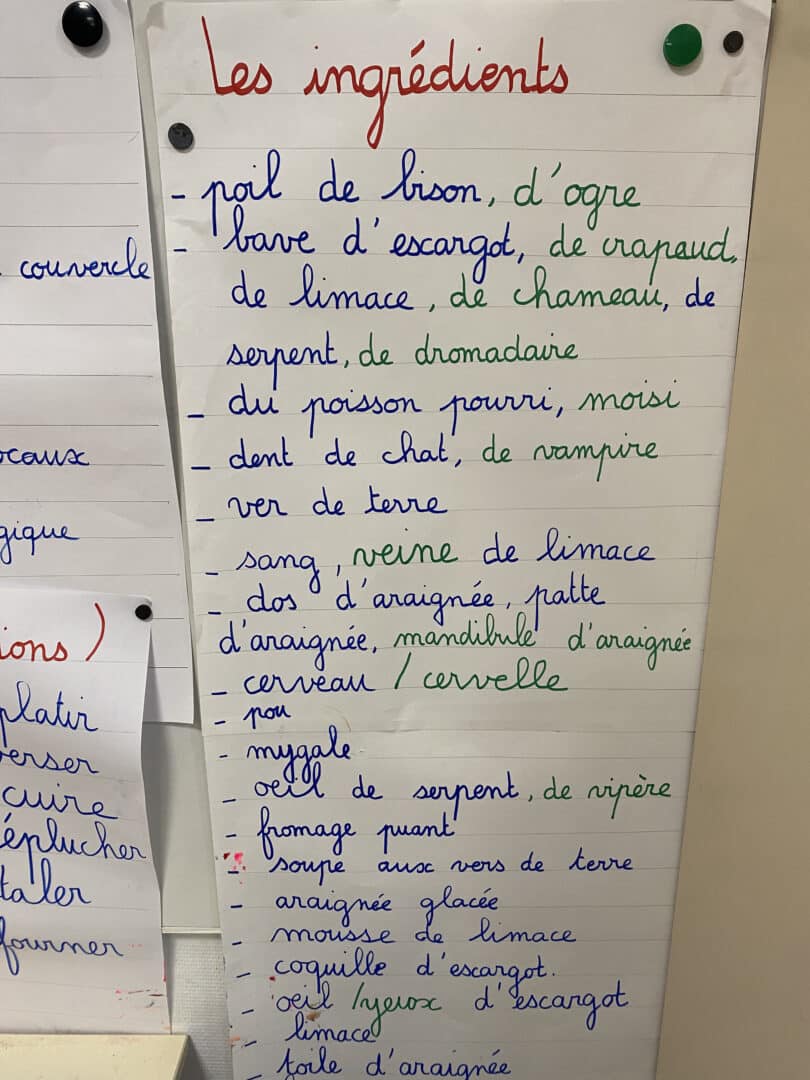 couvercle
ions)
platir
verser
cuire
éplucher
taler
fourner
Les ingrédients
- poil de bison, d'ogre
- bave d'escargot, de crapaud,
de limace, de chameau, de
serpent, de dromadaire
- du poisson pourri, moisi
- dent de chat, de vampire
- ver de terre
- sang, veine de limace
- dos d'araignée, patte
d'araignée, mandibule d'araignée
- cerveau / cervelle
- pou
- mygale
- oeil de serpent, de vipère
- fromage puant
- soupe aux vers de terre
- araignée glacée
- mousse de limace
- coquille d'escargot.
- oeil /yeux d'escargot
- limace
- toile d'araignée